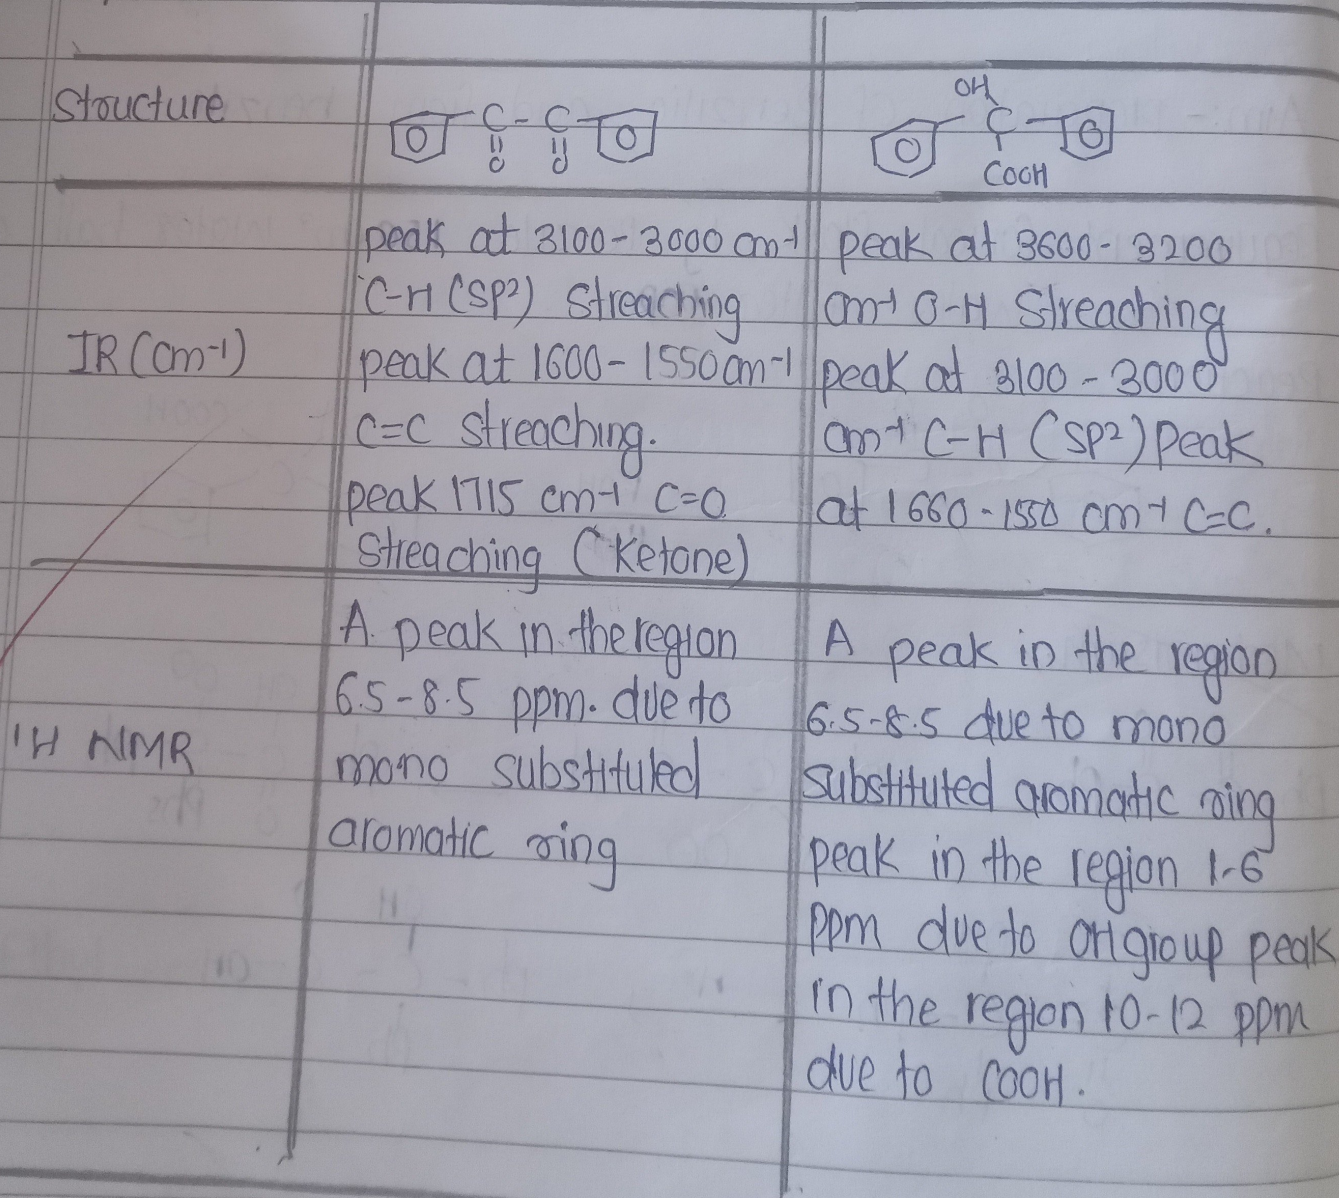 Structure
C - C
O O
O O
OH
C
O O
COOH
IR (cm-1)
peak at 3100-3000 cm-1
C-H (SP2) Streaching
peak at 1600-1550 cm-1
C=C streaching.
peak 1715 cm-1 C=O
Streaching (Ketone)
peak at 3600-3200
cm-1 O-H Streaching
peak at 3100-3000
cm-1 C-H (SP2) Peak
at 1660-1550 cm-1 C=C.
1H NMR
A. peak in the region
6.5-8.5 ppm. due to
mono substituted
aromatic ring
A peak in the region
6.5-8.5 due to mono
substituted aromatic ring
peak in the region 1-6
ppm due to OH group peak
in the region 10-12 ppm
due to COOH.